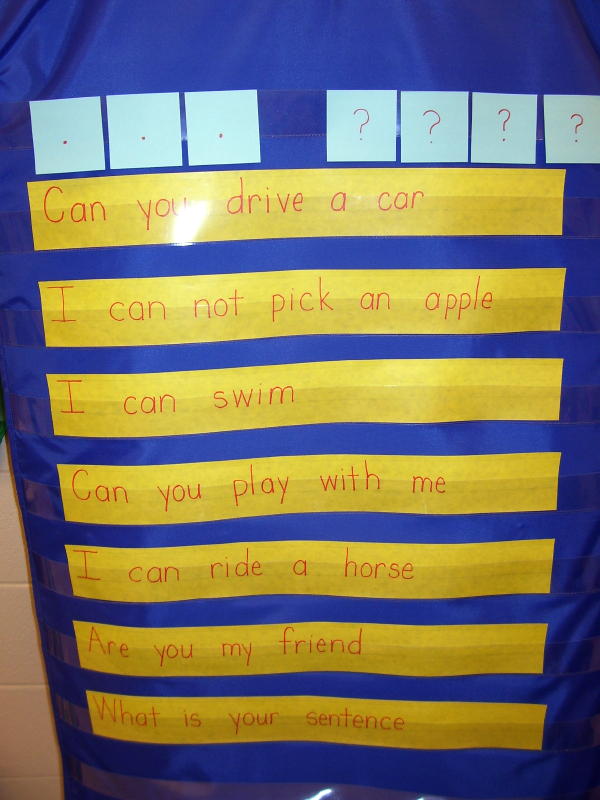 . . . ? ? ? ?
Can you drive a car
I can not pick an apple
I can swim
Can you play with me
I can ride a horse
Are you my friend
What is your sentence